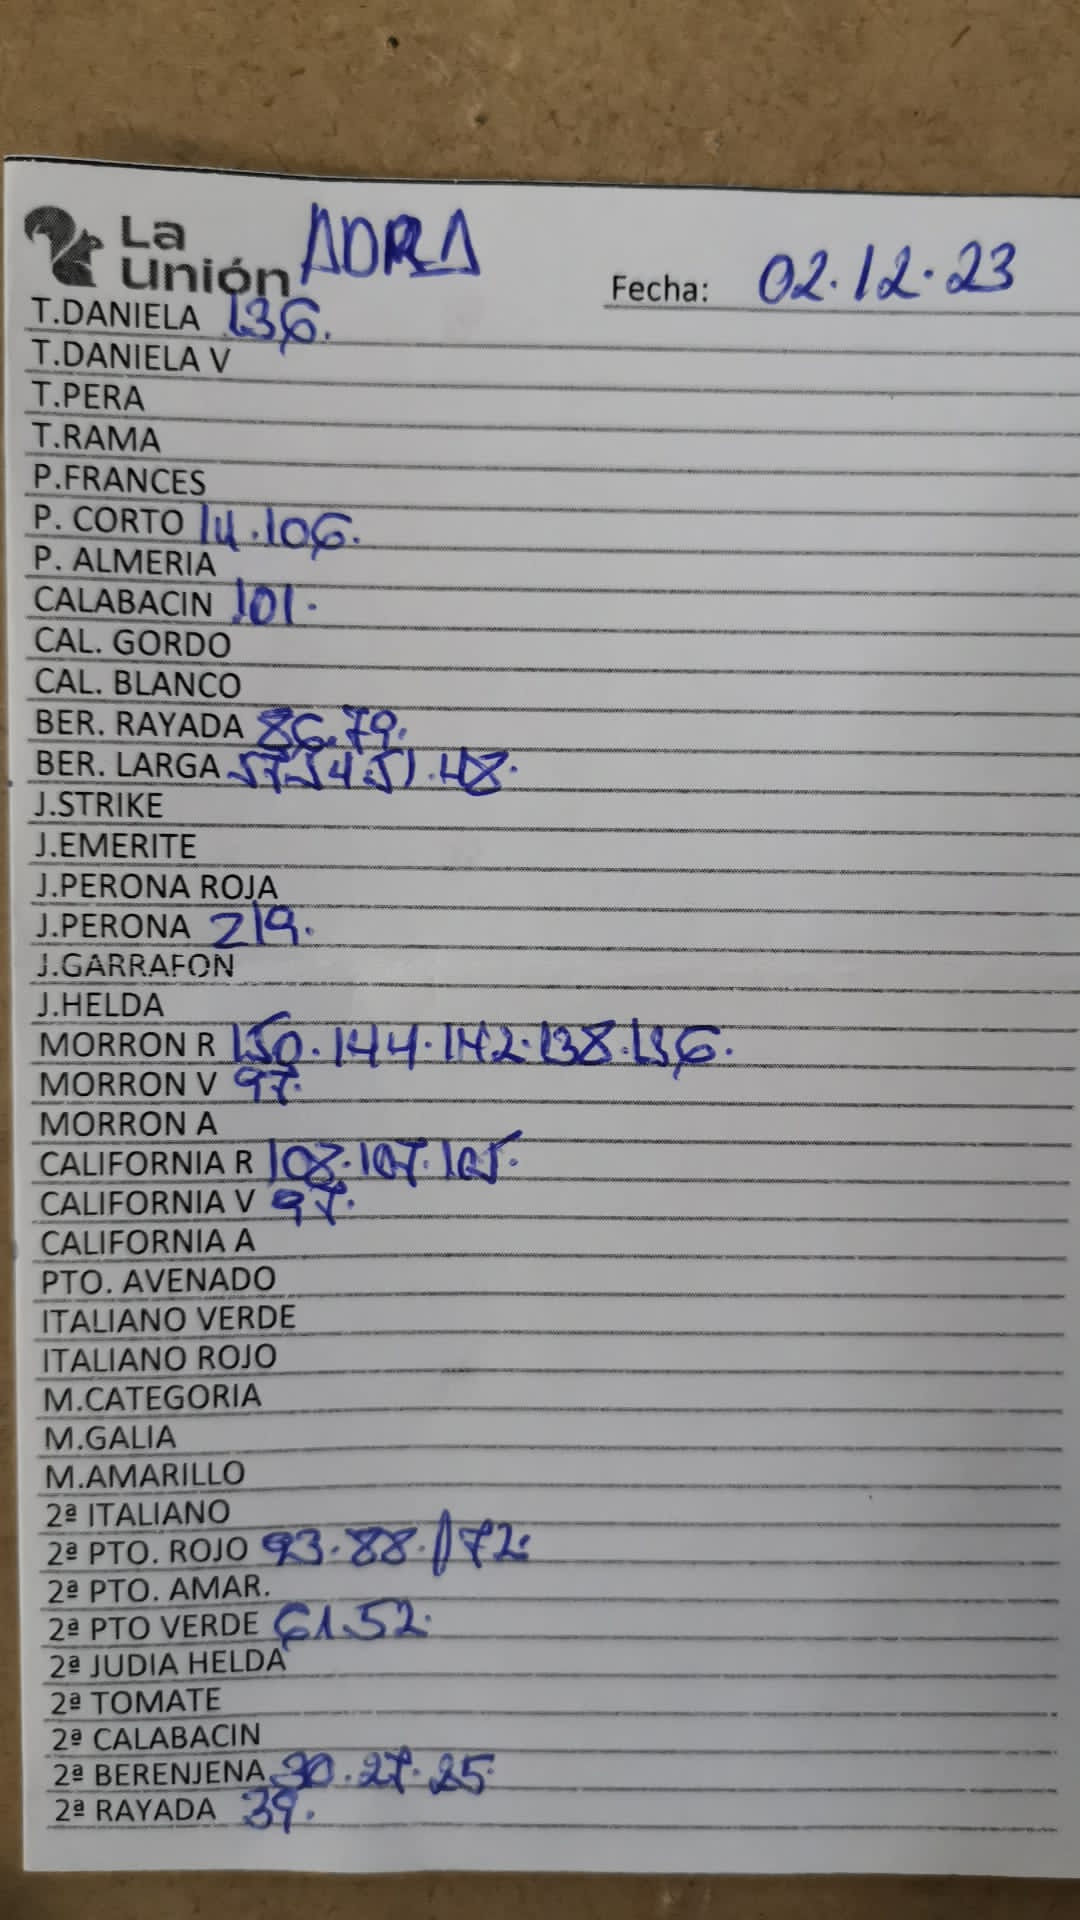 La
Unión ADRA Fecha: 02.12.23
T.DANIELA 136.
T.DANIELA V
T.PERA
T.RAMA
P.FRANCES
P. CORTO 114.106.
P. ALMERIA
CALABACIN 101.
CAL. GORDO
CAL. BLANCO
BER. RAYADA 86.79.
BER. LARGA 57.54.51.48.
J.STRIKE
J.EMERITE
J.PERONA ROJA
J.PERONA 219.
J.GARRAFON
J.HELDA
MORRON R 150.144.142.138.136.
MORRON V 97.
MORRON A
CALIFORNIA R 108.107.105.
CALIFORNIA V 97.
CALIFORNIA A
PTO. AVENADO
ITALIANO VERDE
ITALIANO ROJO
M.CATEGORIA
M.GALIA
M.AMARILLO
2ª ITALIANO
2ª PTO. ROJO 93.88./72.
2ª PTO. AMAR.
2ª PTO VERDE 61.52.
2ª JUDIA HELDA
2ª TOMATE
2ª CALABACIN
2ª BERENJENA 30.27.25.
2ª RAYADA 39.